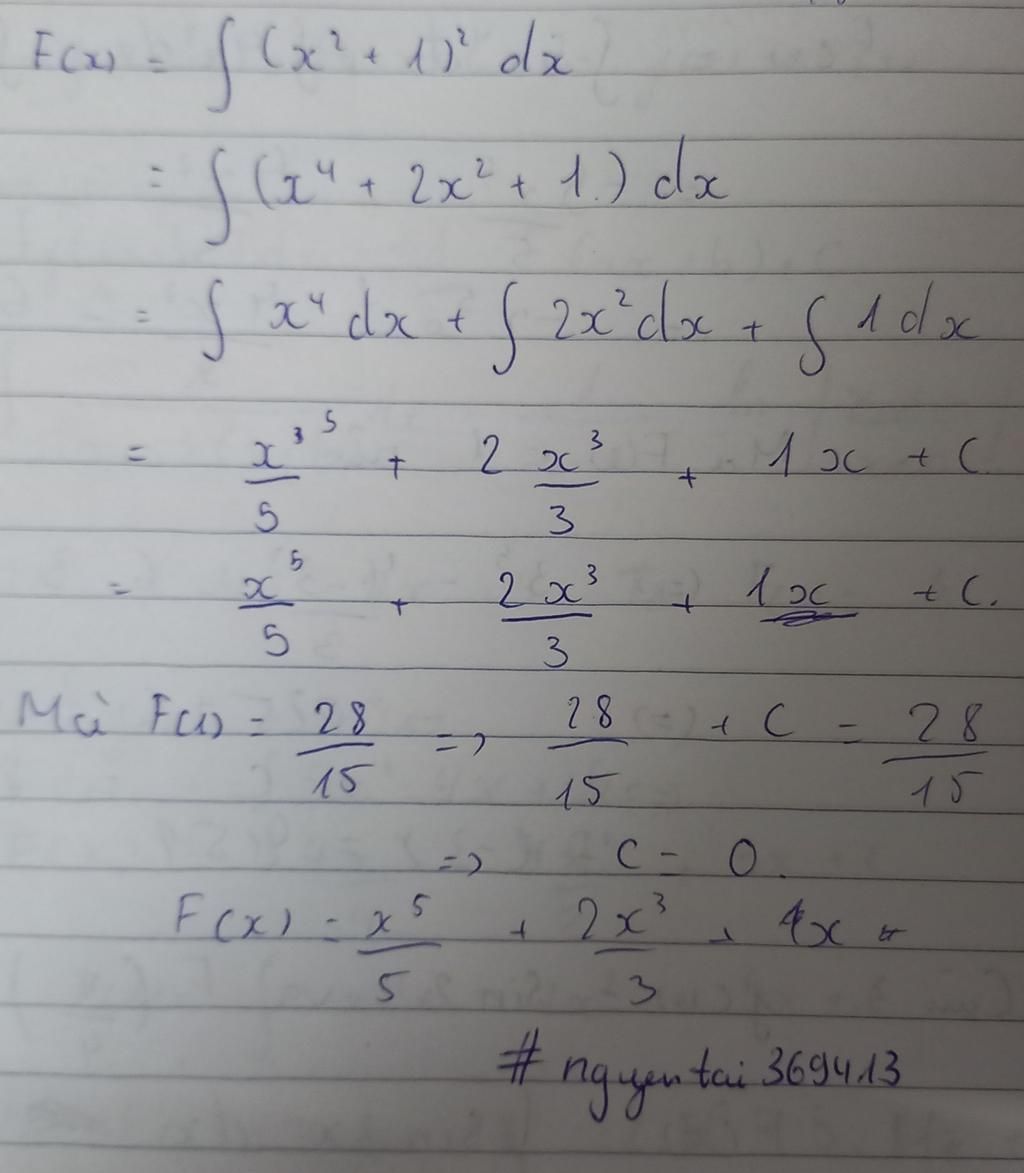 F(x) = ∫ (x² + 1)² dx
= ∫ (x⁴ + 2x² + 1.) dx
= ∫ x⁴ dx + ∫ 2x² dx + ∫ 1 dx
= x³ ⁵/5 + 2 x³/3 + 1x + C
= x⁵/5 + 2x³/3 + 1x + C.
Mà F(1) = 28/15 => 28/15 + C = 28/15
=> C = 0.
F(x) = x⁵/5 + 2x³/3 + 1x
# nguyentai369413